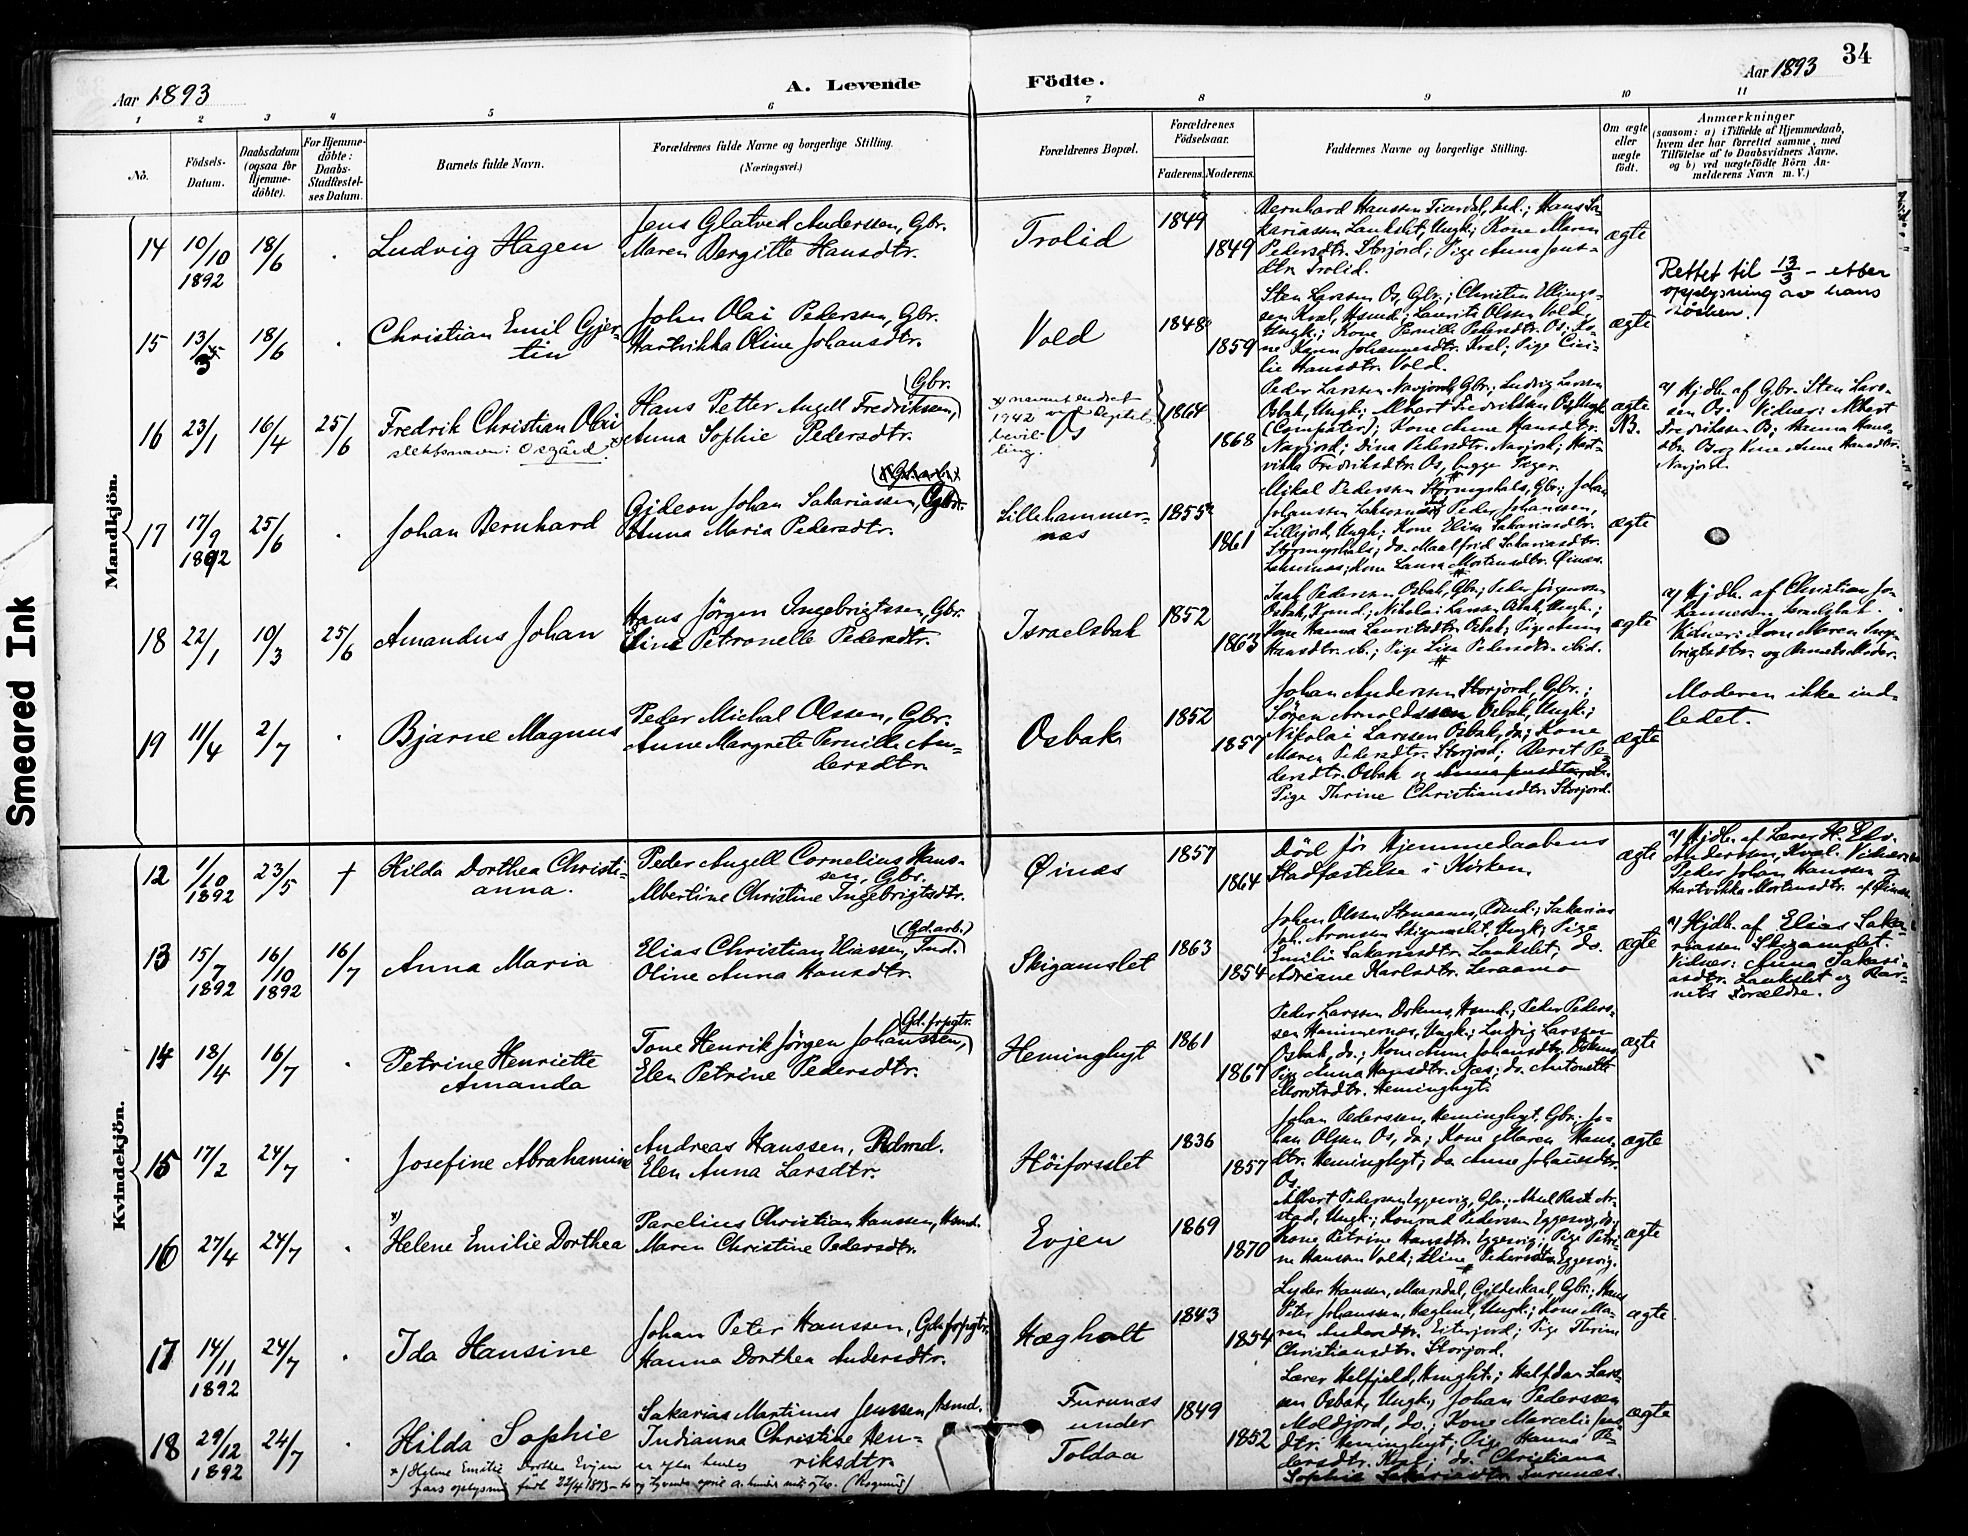 34
Aar 1893
A. Levende
Födte.
Aar 1893
1 2 3 4 5 6 7 8 9 10 11
No.
Födsels-Datum.
Daabsdatum (ogsaa for Hjemme-döbte).
For Hjemme-döbte: Daabs-Stadfæstel-ses Datum.
Barnets fulde Navn.
Forældrenes fulde Navne og borgerlige Stilling.
(Næringsvei.)
Forældrenes Bopæl.
Forældrenes Födselsaar.
Faderens. Moderens.
Faddernes Navne og borgerlige Stilling.
Om ægte eller uægte födt.
Anmærkninger
(saasom: a) i Tilfælde af Hjemmedaab,
hvem der har forrettet samme, med
Tilföielse af to Daabsvidners Navne.
og b) ved uægtefödte Börn An-
melderens Navn m. V.)
Mandkjön.
14 10/10 1892 18/6 . Ludvig Hagen
Jens Glatved Anderssen, Gbr.
Maren Bergitte Hansdtr.
Trolid 1849 1849
Pedersdtr. Storjord; Pige Anna Jens-
dtr. Trolid.
ægte
Rettet til 13/3 - etter
opplysning av hans
15 13/3 18/6 . Christian Emil Gjer-
tin
John Olai Pederssen, Gbr.
Hartvikka Oline Johansdtr.
Vold 1848 1859
Sten Larssen Os, Gbr.; Christen Ellings-
sen Kval, Husmd; Laurits Olssen Vold,
Ungk.; Kone Pernille Pedersdtr. Os; Ko-
ne Karen Johannesdtr. Kval; Pige Ceci-
lie Hansdtr. Vold.
ægte
16 23/1 16/4 25/6 Fredrik Christian Olai
slektsnavn: Osgård.
Hans Petter Angell Fredrikssen, (Gbr.)
Anna Sophie Pedersdtr.
x) navnet endret
1942
bevil-
ling.
Os
1864 1868
Peder Larssen Navjord, Gbr.; Ludvig Larssen
Osbak, Ungk.; Albert Fredrikssen Os, Ungk.
Kone Anne Hansdtr.
Navjord; Dina Pedersdtr. Navjord; Hart-
vikka Fredriksdtr. Os, begge Piger.
ægte
NB.
a) Hjdb. af Gbr. Sten Lars-
sen Os. Vidner: Albert
Fredrikssen Os; Hanna Hans-
dtr. Os og Kone Anne Hansdtr.
Navjord.
17 17/9 1892 25/6 . Johan Bernhard
Gideon Johan Sakariassen, Gbr.
Anna Maria Pedersdtr.
Lillehammer-
næs
1855 1861
Lillejord, Ungk.; Kone Elisa Sakariasdtr.
Kone Laura Mortensdtr. Øinæs.
ægte
18 22/1 10/3 25/6 Amandus Johan
Hans Jörgen Ingebrigtssen, Gbr.
Eline Petronelle Pedersdtr.
Israelsbak 1852 1863
Isak Pederssen Osbak, Gbr.; Peder Jörgenssen
Osbak, Nikolai Larssen Osbak, Ungk.;
Kone Hanna Lauritsdtr. Osbak; Pige Anna
Hansdtr. Pige Lisa Pedersdtr. ibid.
ægte
a) Hjdb. af Christian Jo-
hannessen Israelsbak.
Vidner: Kone Maren Inge-
brigtsdtr. og Barnets Moder.
19 11/4 2/7 . Bjarne Magnus
Peder Michal Olssen, Gbr.
Anne Margrete Pernille An-
dersdtr.
Osbak 1852 1857
Johan Anderssen Storjord, Gbr.;
Sören Arnoldssen Osbak, Ungk.;
Nikolai Larssen Osbak, do; Kone
Maren Pedersdtr. Storjord; Berit Pe-
dersdtr. Osbak og
Pige Thrine Christiansdtr. Storjord.
ægte
Moderen ikke ind-
ledet.
Kvindekjön.
12 1/10 1892 23/5 † Hilda Dorthea Christi-
anna.
Peder Angell Cornelius Hans-
sen, Gbr.
Albertine Christine Ingebrigtsdtr.
Øinæs 1857 1864
Död för Hjemmedaabens
Stadfæstelse i Kirken
ægte
a) Hjdb. af Lærer H. Edv.
Anderssen, Kval. Vidner:
Peder Johan Hanssen og
Hartvikka Mortensdtr. af Øinæs.
13 15/7 1892 16/10 1892 16/7 Anna Maria
Elias Christian Eliassen, Ind. (Gd.arb.)
Oline Anna Hansdtr.
Skigamslet 1863 1854
Emilie Sakariasdtr. Laukslet, do.
Adriane Karlsdtr. Leraamo
ægte
a) Hjdb. af Elias Saka-
riassen Skigamslet.
Vidner: Anna Sakari-
asdtr. Laukslet og Bar-
nets Forældre.
14 18/4 16/7 . Petrine Henriette
Amanda
Tone Henrik Jörgen Johanssen, Gd.frpgtr.
Elen Petrine Pedersdtr.
Heminghyt 1861 1867
Peder Larssen Dokmo, Husmd.; Peder Peders-
sen Hammernæs, Ungk.; Ludvig Larssen
Osbak, do.; Kone Anne Johansdtr. Dokmo;
Pige Anna Hansdtr. Næs; do. Antonette
Moritsdtr. Heminghyt.
ægte
15 17/2 24/7 . Josefine Abrahamine
Andreas Hanssen, Rdmd.
Elen Anna Larsdtr.
Höiforsslet 1836 1857
Johan Pederssen, Heminghyt, Gbr.; Jo-
han Olssen Os, do; Kone Maren Hans-
dtr. Heminghyt; do Anne Johansdtr.
Os.
ægte
16 27/4 24/7 . x) Helene Emilie Dorthea
Parelius Christian Hanssen, Husmd.
Maren Christine Pedersdtr.
Evjen 1869 1870
Albert Pederssen Eggesvig, Gbr.;
stad, Ungk.; Konrad Pederssen Eggesvig, do;
Kone Petrine Hansdtr. Eggesvig; Pige Petri-
ne Hanssen Vold; Eline Pedersdtr. Eggesvig.
ægte
17 14/11 1892 24/7 . Ida Hansine
Johan Peter Hanssen, Gdfrpgtr.
Hanna Dorthea Andersdtr.
Hægholt 1843 1854
Lyder Hanssen, Maarsdal, Gildeskaal, Gbr.; Hans
Peter Johanssen, Ungk.; Kone Ma-
ren Andersdtr. Eiterjord; Pige Thrine
Christiansdtr. Storjord.
ægte
18 29/12 1892 24/7 . Hilda Sophie
Sakarias Martinus Jenssen, Husmd.
Indianna Christine Hen-
riksdtr.
Furunæs
under
Toldaa
1849 1852
Lærer Helfjeld, Halfdan Lars-
sen Osbak, Ungk., Johan Pederssen
Moldjord, do.; Kone Marcelie Jens-
dtr. Heminghyt; Pige Hanna Pe-
dersdtr. Kval; do. Christiana
Sophie Sakariasdtr. Furunæs.
ægte
x) Helene Emilie Dorthea Evjen er efter hendes
fars oplysning født 22/4 1893 - to og tyvende april
Smeared Ink